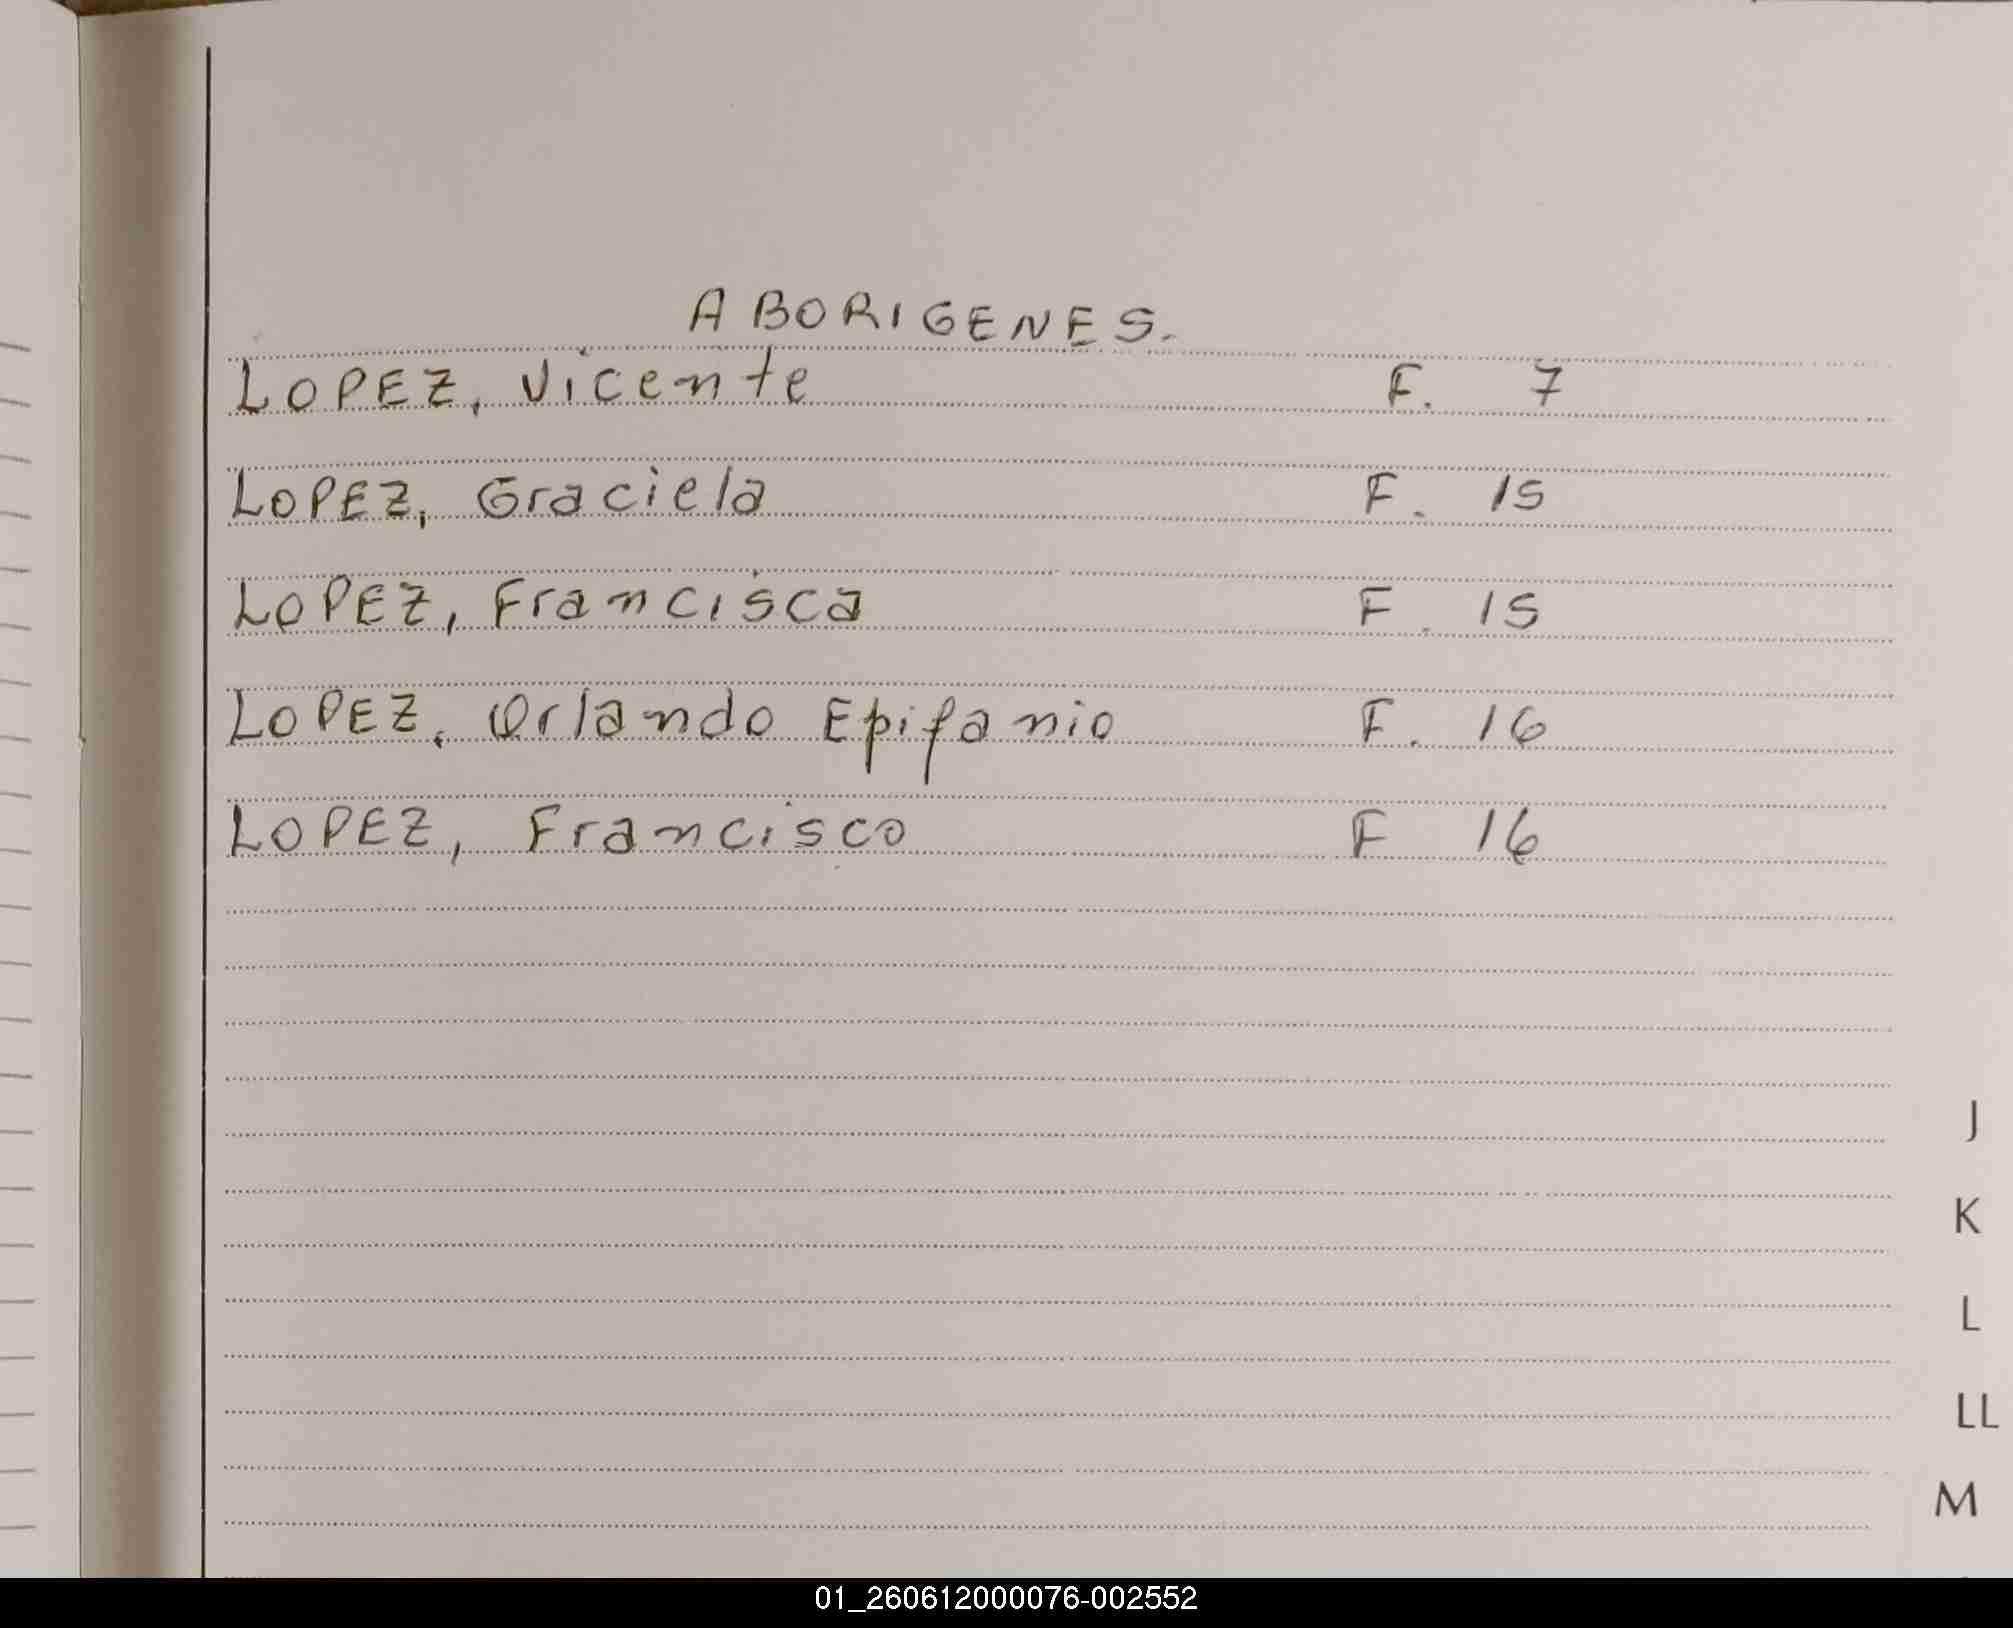 ABORIGENES.
LOPEZ, Vicente F. 7
LOPEZ, Graciela F. 15
LOPEZ, Francisca F. 15
LOPEZ, Orlando Epifanio F. 16
LOPEZ, Francisco F 16
J
K
L
LL
M
01_260612000076-002552